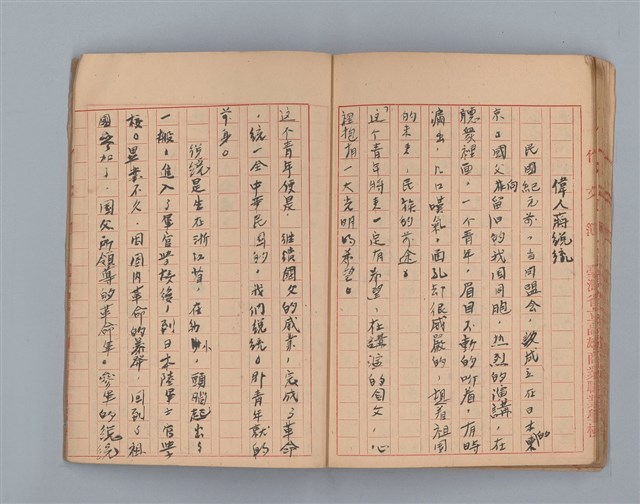 偉人蔣總統
民國紀元前，当同盟会，被成立在日本東
京日國父在向留日的我国同胞，热烈的演講，在
聽發裡面，一个青年，眉目不動的听着，有時
滴出，人口嘆氣，面孔却很威嚴的，想着祖国
的未來，民族的前途。
「这个青年將來一定有希望，在講演的国父，心
裡抱有一大光明的希望。
这个青年便是，继續國父的威業，完成了革命
，統一令中華民国的，我們総統。那青年就的
前身。
総統是生在浙江省，在幼小，頭腦起出了
一般，進入了軍官学校後，到日本陸軍士官学
校。畢業不久，因国内革命的暴舉，回到了祖
國参加了，国父所領導的革命軍。參軍的総統